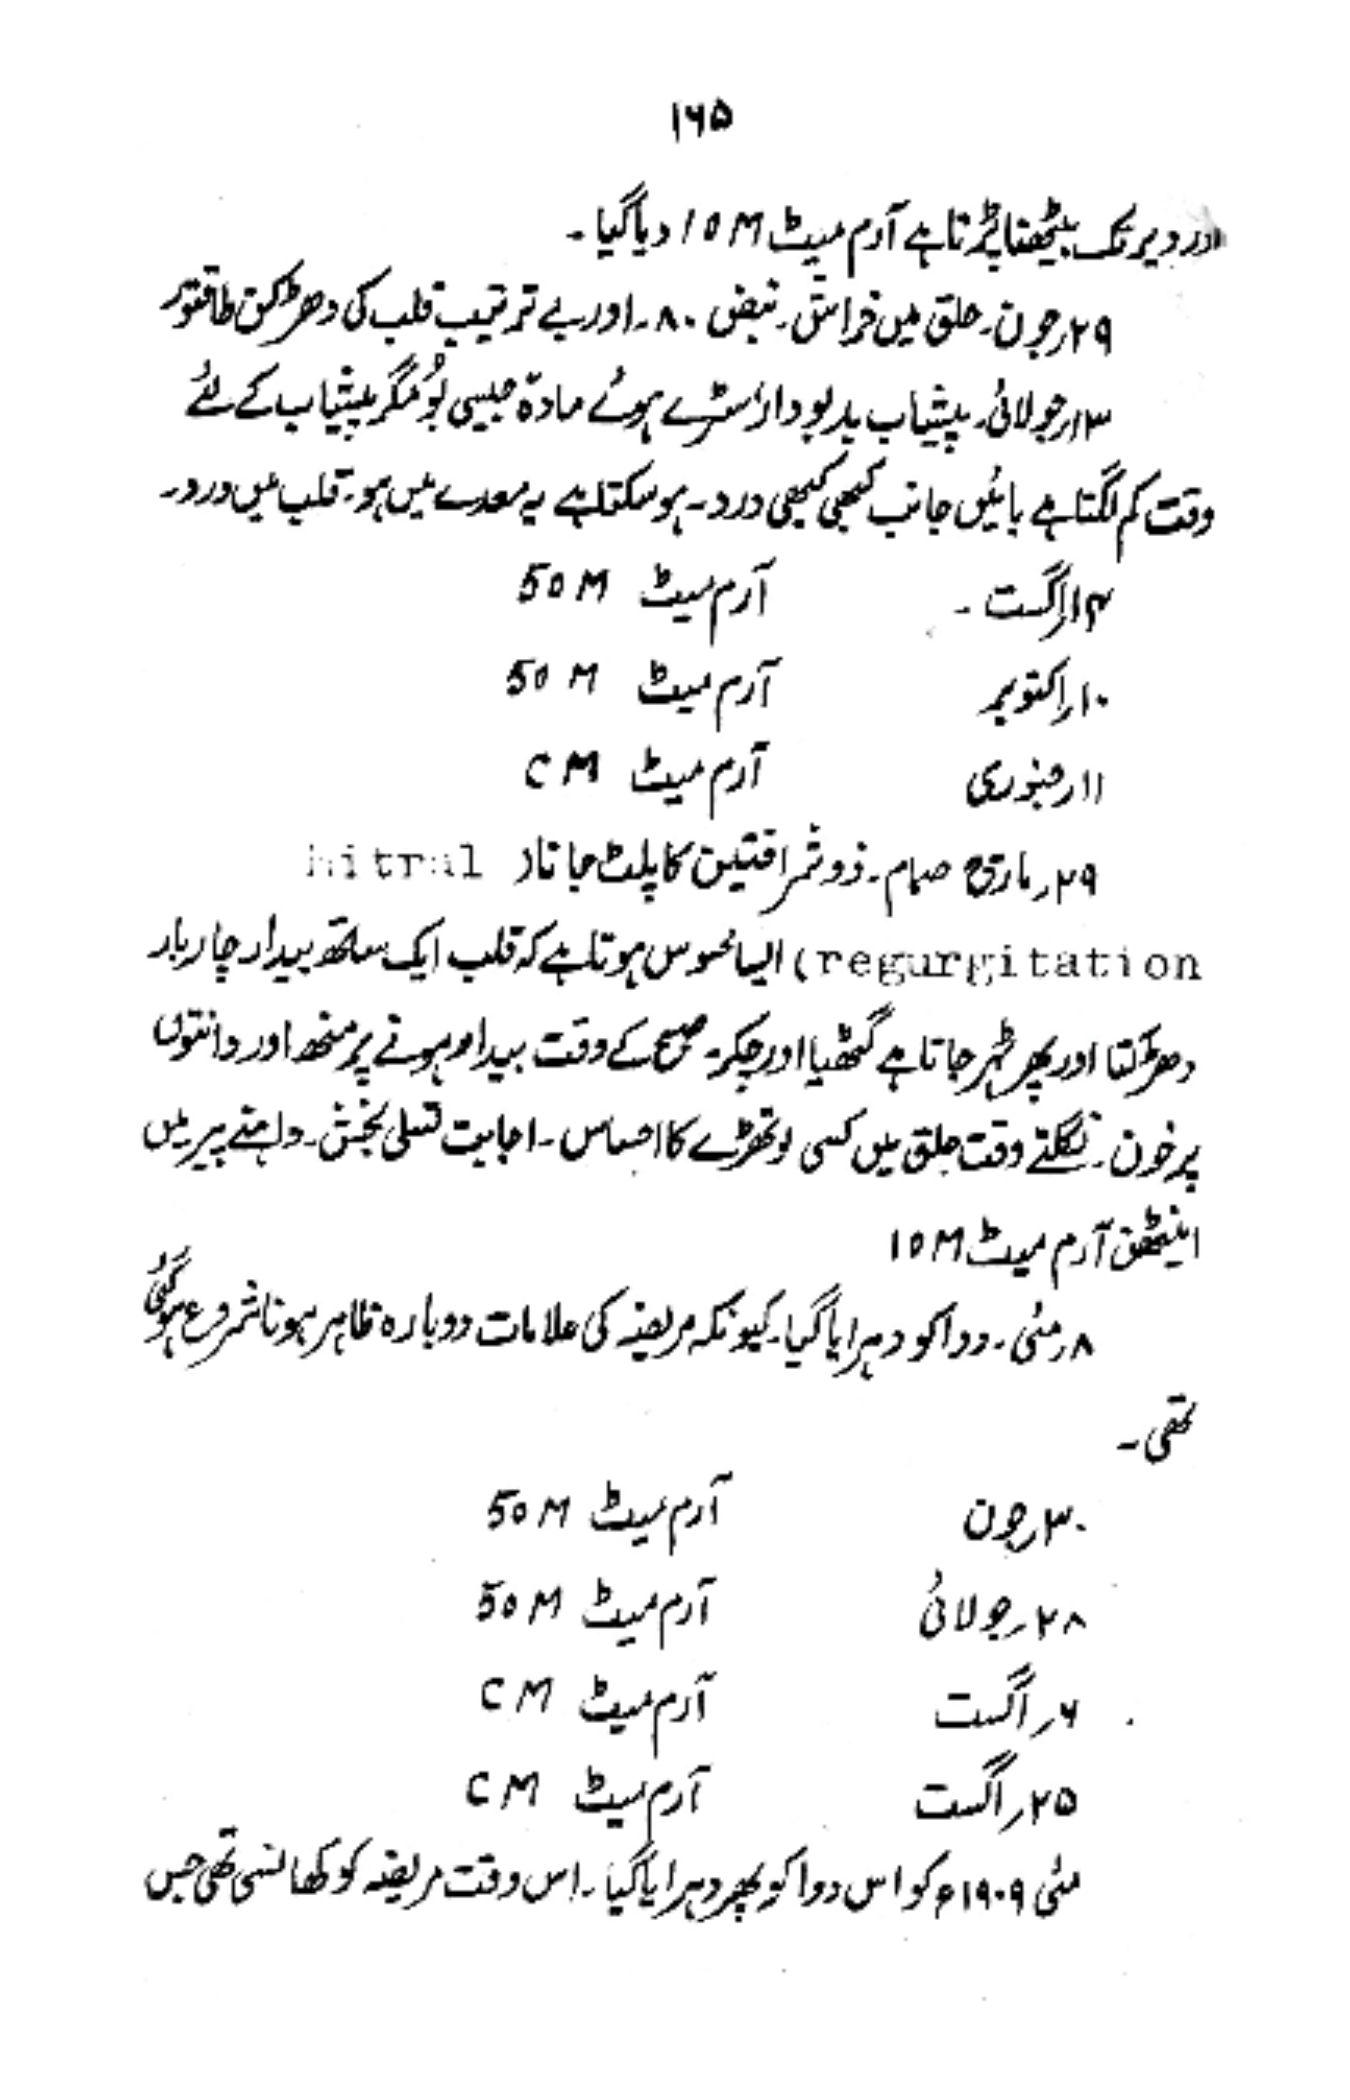 ۱۶۵
اور دیر تک بیٹھنا پڑتا ہے آرم میٹ 10M دیا گیا۔
۲۹؍جون۔ حلق میں خراش۔ نبض ۸۰۔ اور بے ترتیب قلب کی دھڑکن طاقتور
۱۳؍جولائی۔ پیشاب بدبودار، سڑے ہوئے مادّہ جیسی بُو مگر پیشاب کے لئے
وقت کم لگتا ہے بائیں جانب کبھی کبھی درد۔ ہو سکتا ہے یہ معدے میں ہو۔ قلب میں درد۔
۱۴؍اگست۔ آرم میٹ 50M
۱۰؍اکتوبر آرم میٹ 50 M
۱۱؍جنوری آرم میٹ CM
۲۹؍مارچ صمام۔ ذو شرافتین کا پلٹ جانا( hitral
regurgitation) ایسا محسوس ہوتا ہے کہ قلب ایک ساتھ بیدار چار بار
دھڑکتا اور پھر ٹہر جاتا ہے گٹھیا اور چکر۔ صبح کے وقت بیدار ہونے پر منھ اور دانتوں
پر خون۔ نگلتے وقت حلق میں کسی لوتھڑے کا احساس۔ اجابت تسلی بخش۔ داہنے پیر میں
اینٹھن آرم میٹ 10M
۸؍مئی۔ دوا کو دہرایا گیا۔ کیونکہ مریضہ کی علامات دوبارہ ظاہر ہونا شروع ہو گئی
تھی۔
۳۰؍جون آرم میٹ 50M
۲۸؍جولائی آرم میٹ 50M
۶؍اگست آرم میٹ CM
۲۵؍اگست آرم میٹ CM
مئی ۱۹۰۹ء کو اس دوا کو پھر دہرایا گیا۔ اس وقت مریضہ کو کھانسی تھی جس